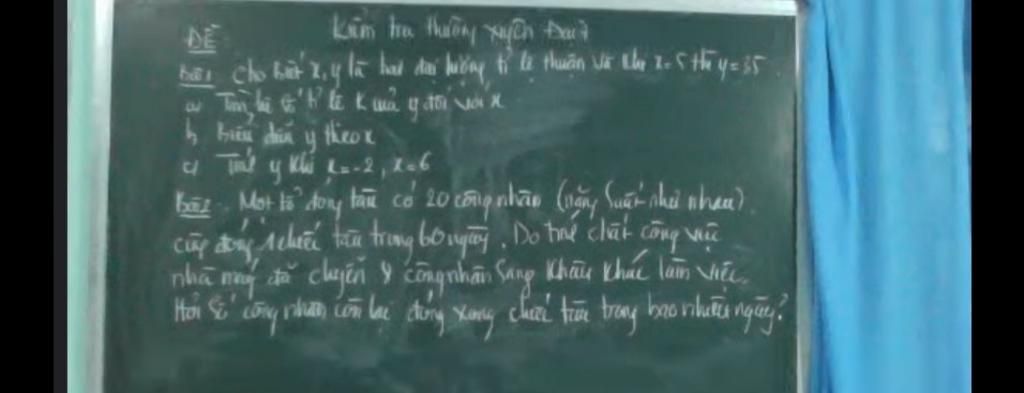 ĐỀ Kiểm tra thường xuyên Đại 7
Bài 1 Cho biết x, y là hai đại lượng tỉ lệ thuận và khi x = 5 thì y = 35
a) Tìm hệ số tỉ lệ k của y đối với x
b) Biểu diễn y theo x
c) Tính y khi x = -2, x = 6
Bài 2 Một tổ đóng tàu có 20 công nhân (năng suất như nhau)
cùng đóng 1 chiếc tàu trong 60 ngày. Do tính chất công việc
nhà máy đã chuyển 8 công nhân sang khâu khác làm việc.
Hỏi số công nhân còn lại đóng xong chiếc tàu trong bao nhiêu ngày?